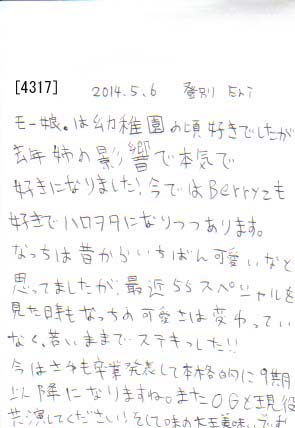 [4317] 2014.5.6 登別 Eri
モー娘。は幼稚園の頃好きでしたが
去年姉の影響で本気で
好きになりました!今ではBerryzも
好きでハロヲタになりつつあります。
なっちは昔からいちばん可愛いなと
思ってましたが、最近SSスペシャルを
見た時もなっちの可愛さは変わってい
なく、若いままでステキっした!!
今はさゆも卒業発表して本格的に9期
以降になりますね。またOGと現役
共演してください!そして味の大王美味いです